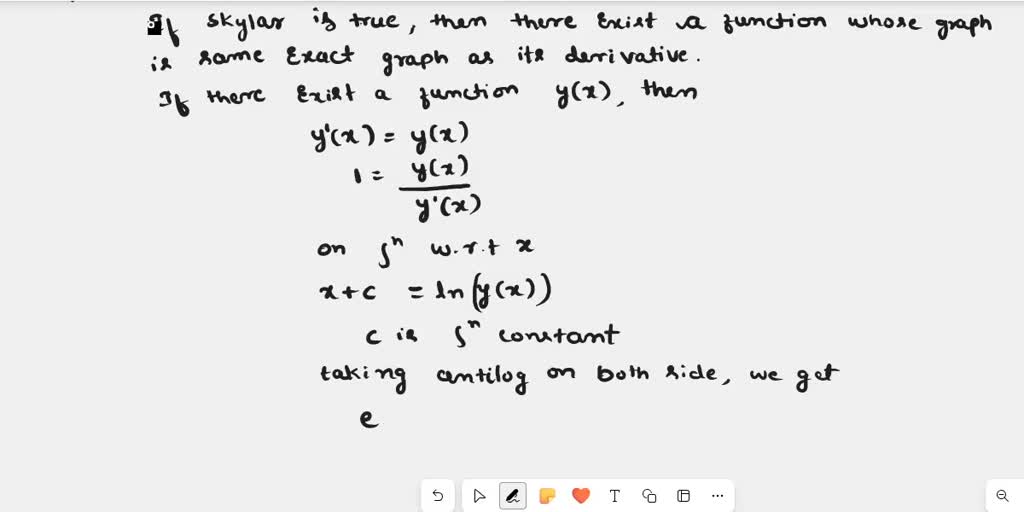 If Skylar is true, then there Exist a function whose graph
is same Exact graph as its derrivative.
If there Exist a function y(x), then
y'(x) = y(x)
1 = y(x)
y'(x)
on ∫ⁿ w.r.t x
x+c = ln(y(x))
c is ∫ⁿ constant
taking antilog on both side, we get
e
T